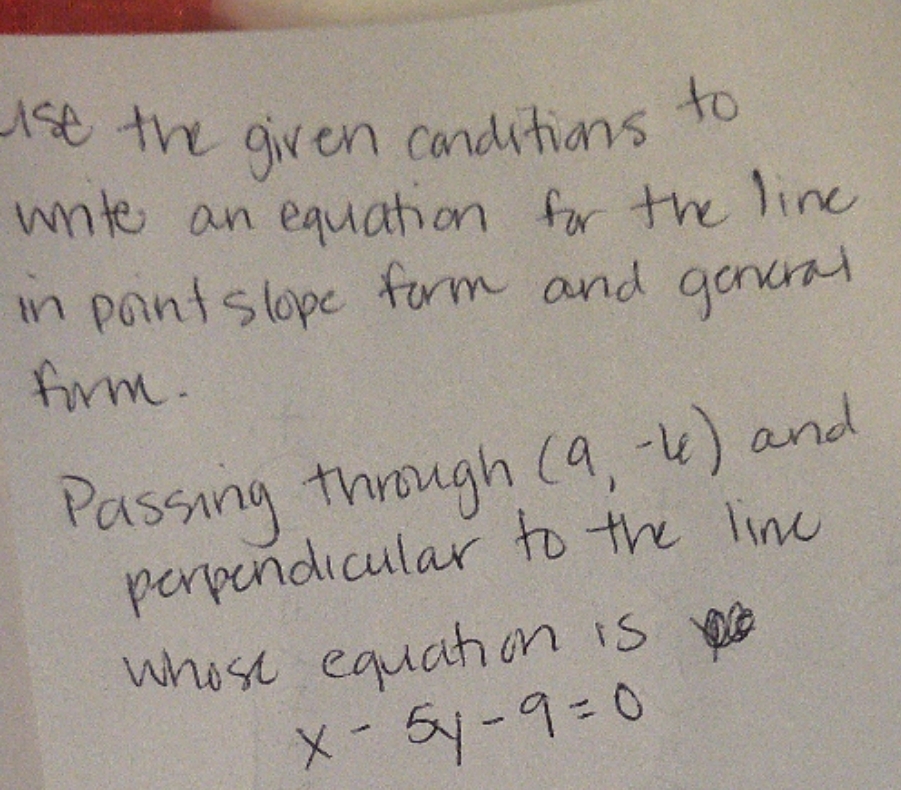 use the given conditions to
write an equation for the line
in point slope form and general
form.
Passing through (9, -6) and
perpendicular to the line
whose equation is
x - 5y - 9 = 0